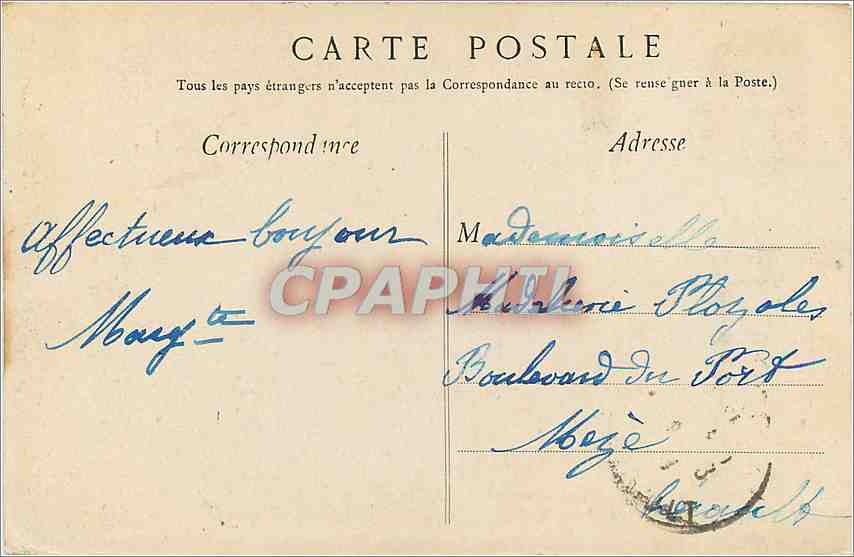 CARTE POSTALE
Tous les pays étrangers n'acceptent pas la Correspondance au recto. (Se renseigner à la Poste.)
Correspondance
Adresse
Affectueux bonjour
Marg te
Mademoiselle
Boulevard du Port
Mèze
Hérault
CPAPHIL